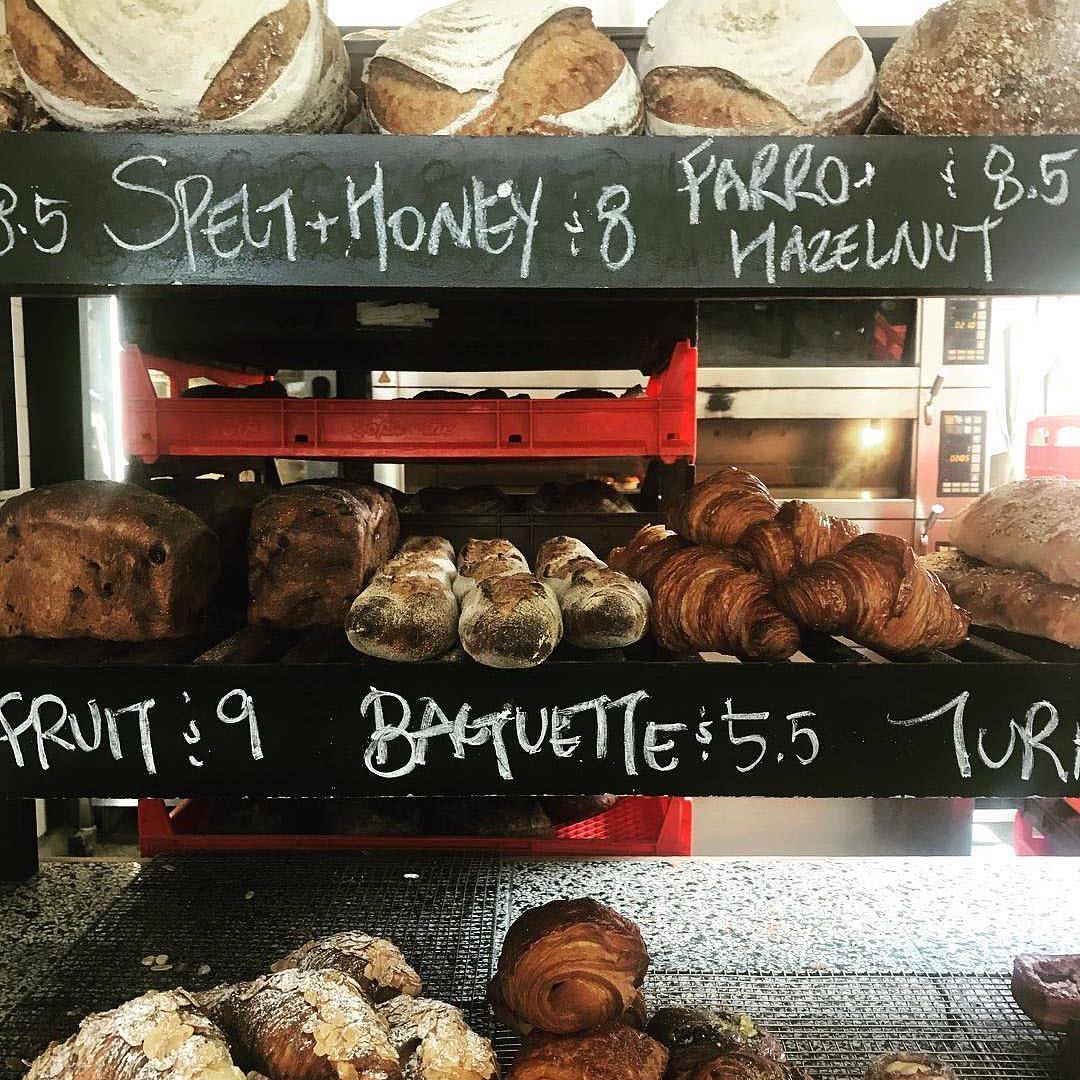 8.5 SPELT + HONEY $8 FARRO + $8.5
HAZELNUT
FRUIT $9 BAGUETTE $5.5 TURK